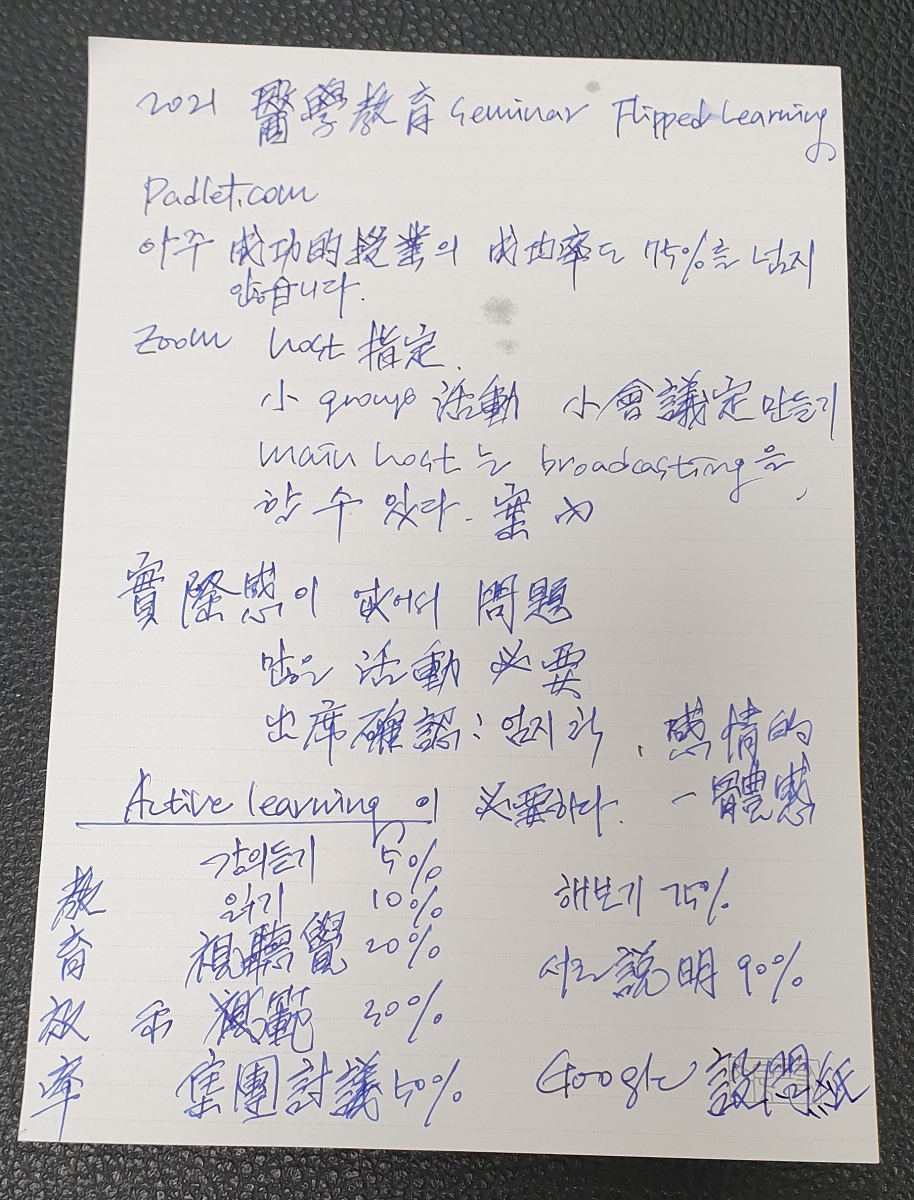 2021 醫學教育 Seminar Flipped Learning
Padlet.com
아주 成功的授業의 成功率도 75%를 넘지
않습니다.
Zoom host 指定.
小 group 活動 小會議定 만들기
main host는 broadcasting을
할 수 있다.
實際感이 없어서 問題
많은 活動 必要
出席確認: 엄지척, 感情的
一體感
Active learning이 必要하다.
강의듣기 5%
읽기 10% 해보기 75%
視聽覺 20%
서로 說明 90%
示範 30%
集團討議 50% Google 設問紙
教育效率